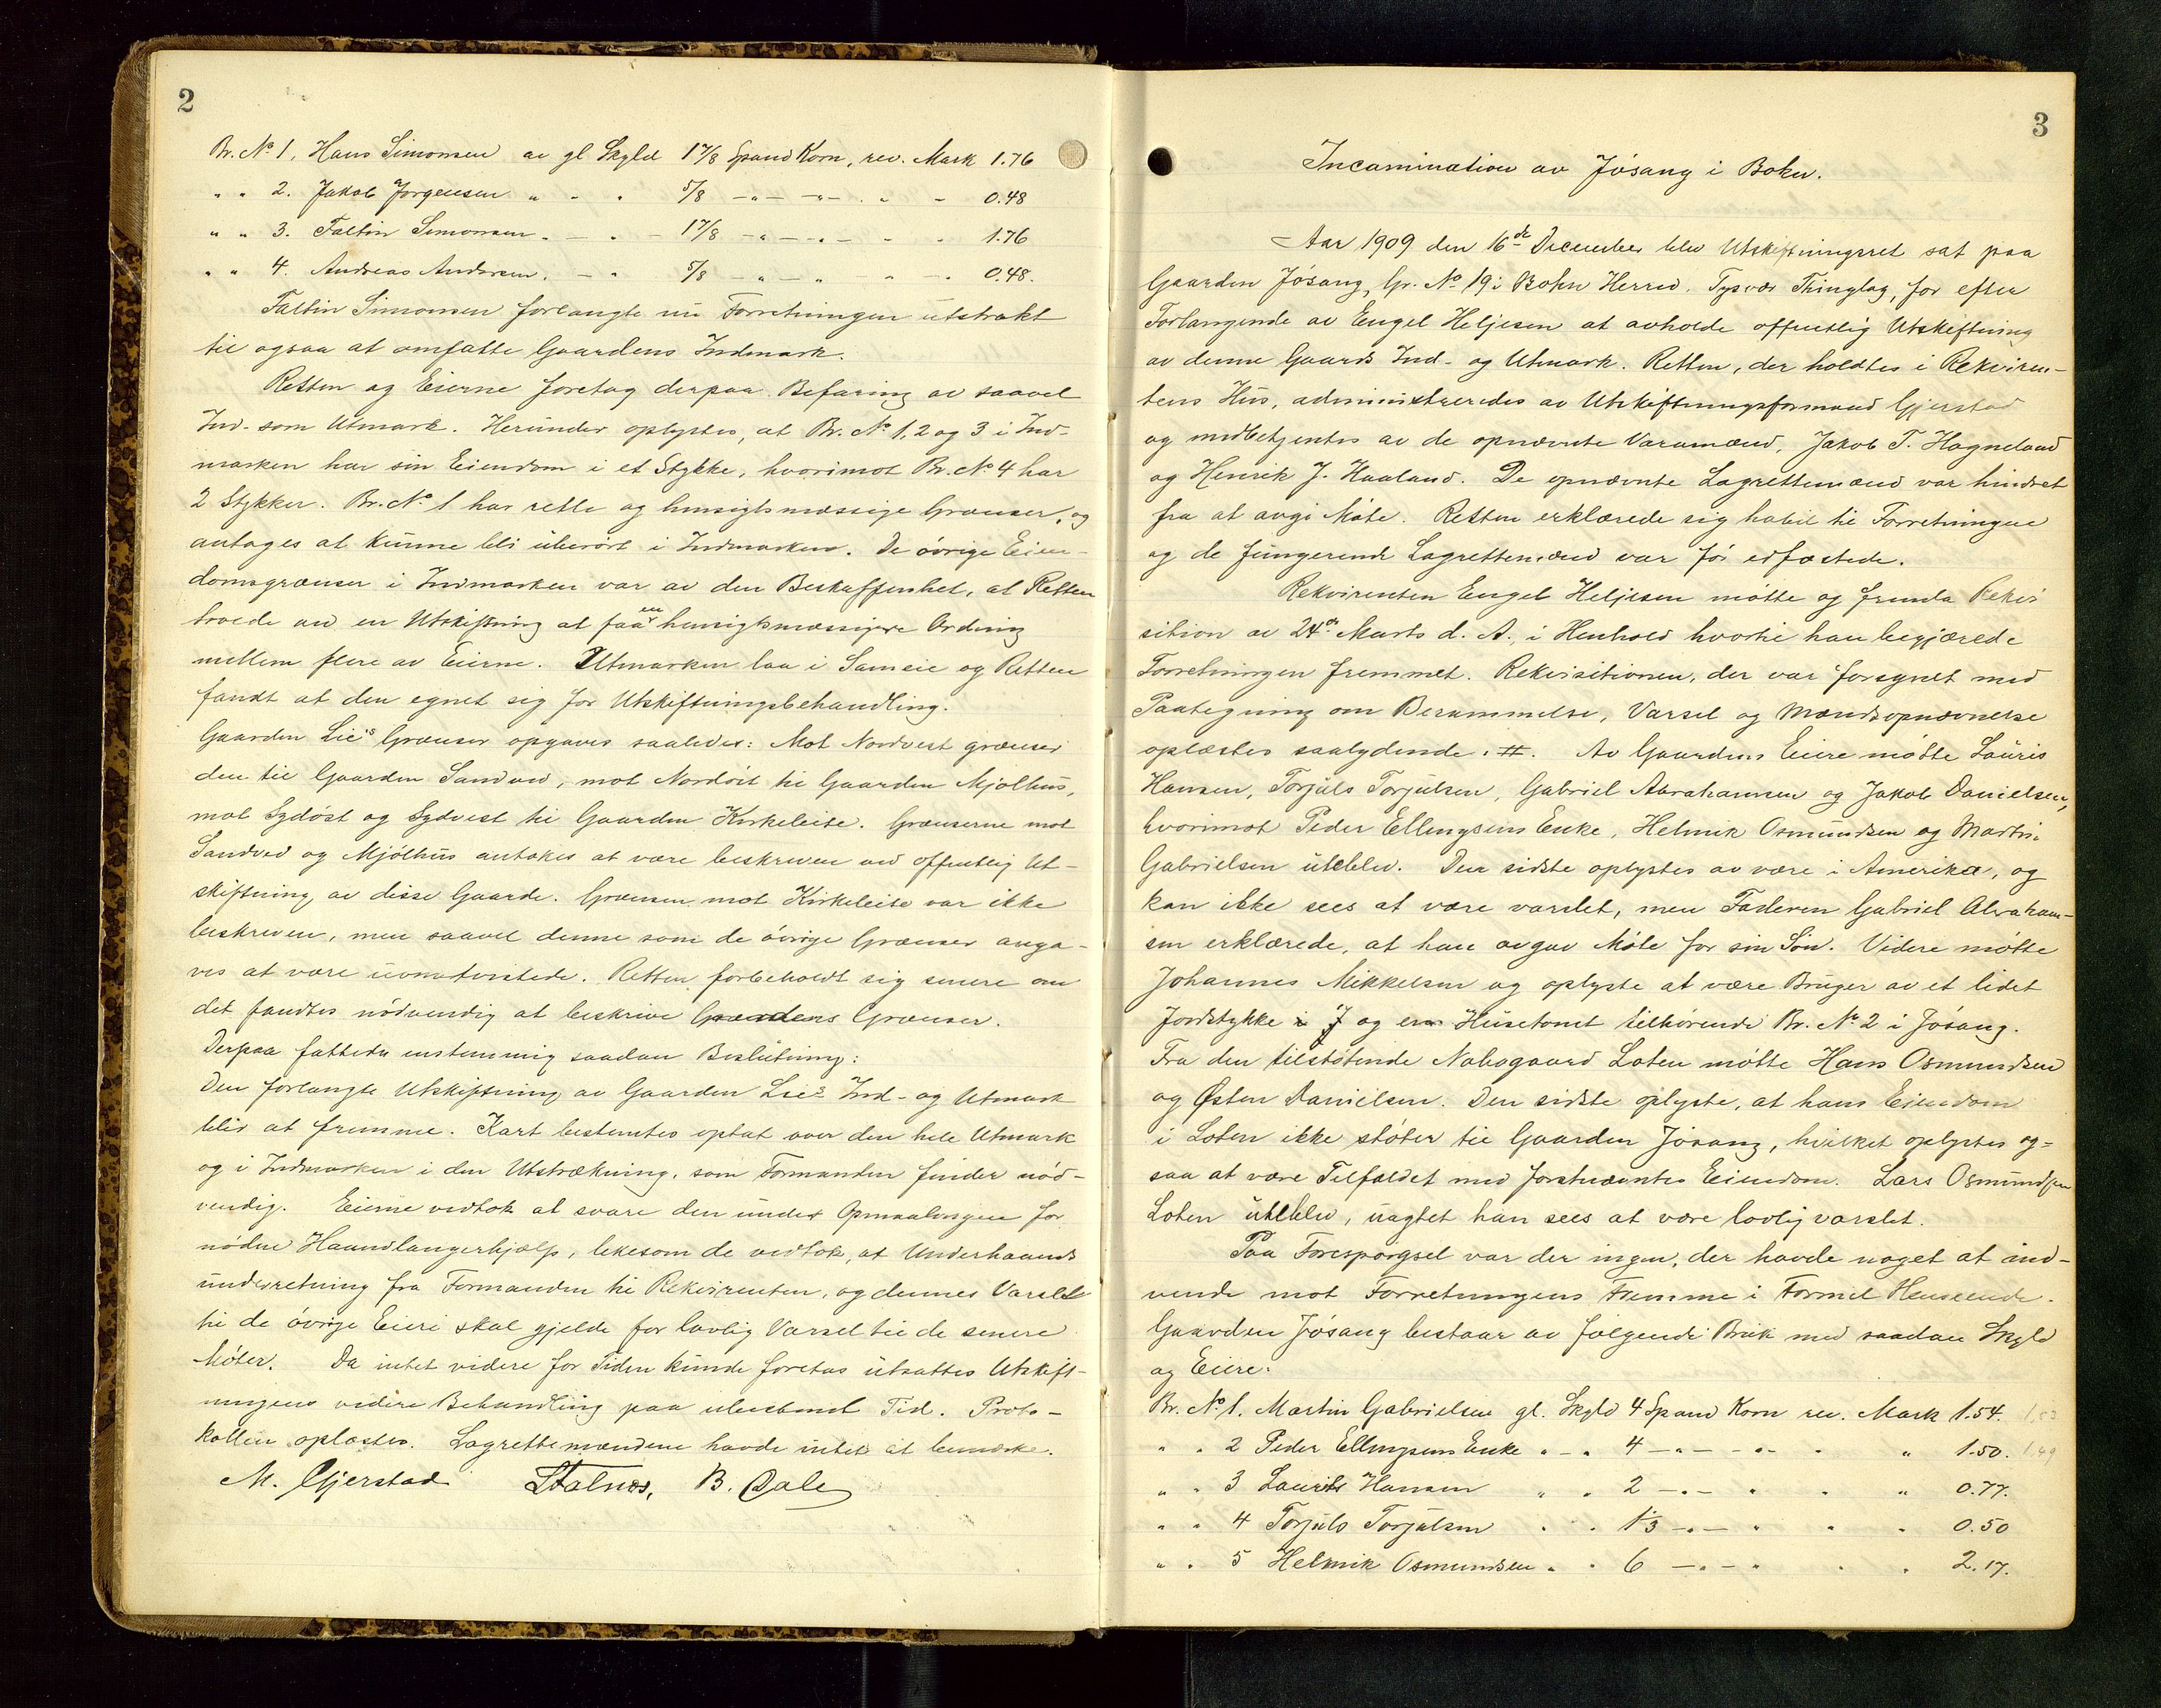 2
Br. No 1, Hans Simonsen av gl Skyld 1 7/8 Spand Korn, rev. Mark 1.76
" " 2. Jakob Jørgensen " - " 5/8 -"- -"- . " - 0.48
" " 3. Faltin Simonsen . - . - 1 7/8 -"- -"- " . 1.76
" " 4. Andreas Andersen . - " 5/8 - " - " - " - . 0.48.
Faltin Simonsen forlangte nu Forretningen utstrakt
til ogsaa at omfatte Gaardens Indmark.
Retten og Eierne foretog derpaa Befaring av saavel
Ind- som Utmark. Herunder oplystes, at Br. No 1, 2 og 3 i Ind-
marken har sin Eiendom i et Stykke, hvorimot Br. No 4 har
2 Stykker. Br. No 1 har rette og hensigtsmæssige Grænser, og
antages at kunne bli uberørt i Indmarken. De øvrige Eien-
domsgrænser i Indmarken var av den Beskaffenhet, at Retten
troede ved en Utskiftning at faa en hensigtsmæssigere Ordning
mellem flere av Eierne. Utmarken laa i Sameie og Retten
fandt at den egnet sig for Utskiftningsbehandling.
Gaarden Lie's Grænser opgaves saaledes: Mot Nordvest grænser
den til Gaarden Sandved, mot Nordøst til Gaarden Mjølhus,
mot Sydøst og Sydvest til Gaarden Kirkeleite. Grænserne mot
Sandved og Mjølhus antokes at være beskreven ved offentlig Ut-
skiftning av disse Gaarde. Grænsen mot Kirkeleite var ikke
beskreven, men saavel denne som de øvrige Grænser anga-
ves at være uomtvistede. Retten forbeholdt sig senere om
det fandtes nødvendig at beskrive Gaardens Grænser.
Derpaa fattedes enstemmig saadan Beslutning:
Den forlangte Utskiftning av Gaarden Lie's Ind- og Utmark
blir at fremme. Kart bestemtes optat over den hele Utmark
og i Indmarken i den Utstrækning, som Formanden finder nød-
vendig. Eierne vedtok at svare den under Opmaalingen for
nødne Haandlangerhjælp, likesom de vedtok, at Underhaands
underretning fra Formanden til Rekvirenten, og dennes Varsel
til de øvrige Eiere skal gjelde for lovlig Varsel til de senere
Møter. Da intet videre for Tiden kunde foretas utsattes Utskift-
ningens videre Behandling paa ubestemt Tid. Proto-
kollen oplæstes. Lagrettemændene havde intet at bemerke.
M. Gjerstad B. Dale
3
Incamination av Jøsang i Bokn.
Aar 1909 den 16de December blev Utskiftningsret sat paa
Gaarden Jøsang, Gr. No 19 i Bokn Herred. Tysvær Thinglag, for efter
Forlangende av Engel Heljesen at avholde offentlig Utskiftning
av denne Gaards Ind- og Utmark. Retten, der holdtes i Rekviren-
tens Hus, administreredes av Utskiftningsformand Gjerstad
og medbetjentes av de opnævnte Varamænd, Jakob T. Hagneland
og Henrik J. Haaland. De opnævnte Lagrettemænd var hindret
fra at avgi Møte. Retten erklærede sig habil til Forretningen
og de fungerende Lagrettemænd var før edfæstede.
Rekvirenten Engel Heljesen møtte og fremla Rekvi
sition av 24de Marts d. A., i Henhold hvortil han begjærede
Forretningen fremmet. Rekvisitionen, der var forsynet med
Paategning om Berammelse, Varsel og Mændsopnævnelse
oplæstes saalydende: #. Av Gaardens Eiere møtte Lauris
Hansen, Torjuls Torjulsen, Gabriel Abrahamsen og Jakob Danielsen,
hvorimot Peder Ellingsens Enke, Helmik Osmundsen og Martin
Gabrielsen uteblev. Den sidste oplystes av være i Amerika, og
kan ikke sees at være varslet, men Faderen Gabriel Abraham-
sen erklærede, at han avgav Møte for sin Søn. Videre møtte
Johannes Mikkelsen og oplyste at være Bruger av et lidet
Jordstykke i J og en Husetomt tilhørende Br. No 2 i Jøsang.
Fra den tilstøtende Nabogaard Loten møtte Hans Osmundsen
og Østen Danielsen. Den sidste oplyste, at hans Eiendom
i Loten ikke støter til Gaarden Jøsang, hvilket oplystes og-
saa at være Tilfældet med forstnævntes Eiendom. Lars Osmundsen
Loten uteblev, uagtet han sees at være lovlig varslet.
Paa Forespørgsel var der ingen, der havde noget at ind-
vende mot Forretningens Fremme i Formel Henseende.
Gaarden Jøsang bestaar av følgende Bruk med saadan Skyld
og Eiere:
Br. No 1. Martin Gabrielsen gl. Skyld 4 Spand Korn rev. Mark 1.54. 1.53
" . 2 Peder Ellingsens Enke " - " 4 -"- - "- " " 1.50. 1.49
" . 3 Laurits Hansen " " 2 -"- " . " 0.77.
" . 4 Torjuls Torjulsen . . 1 1/3 -"- " " " 0.50
" . 5 Helmik Osmundsen . " 6 -"- " . . 2.17.